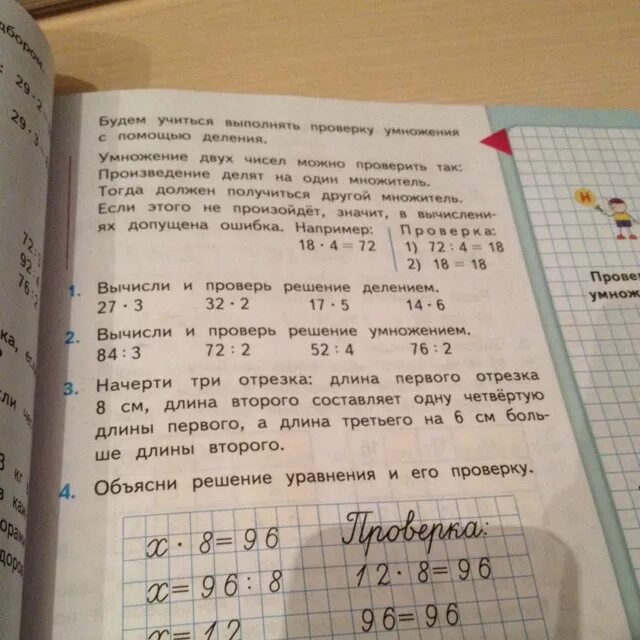 дбором
29 · 2
29 · 3
72 :
92 :
76 : 2
Будем учиться выполнять проверку умножения
с помощью деления.
Умножение двух чисел можно проверить так:
Произведение делят на один множитель.
Тогда должен получиться другой множитель.
Если этого не произойдёт, значит, в вычислени-
ях допущена ошибка. Например: Проверка:
18 · 4 = 72 1) 72 : 4 = 18
2) 18 = 18
1. Вычисли и проверь решение делением.
27 · 3 32 · 2 17 · 5 14 · 6
2. Вычисли и проверь решение умножением.
84 : 3 72 : 2 52 : 4 76 : 2
3. Начерти три отрезка: длина первого отрезка
8 см, длина второго составляет одну четвёртую
длины первого, а длина третьего на 6 см боль-
ше длины второго.
4. Объясни решение уравнения и его проверку.
x · 8 = 96 Проверка:
x = 96 : 8 12 · 8 = 96
x = 12 96 = 96
Н
Прове
умнож